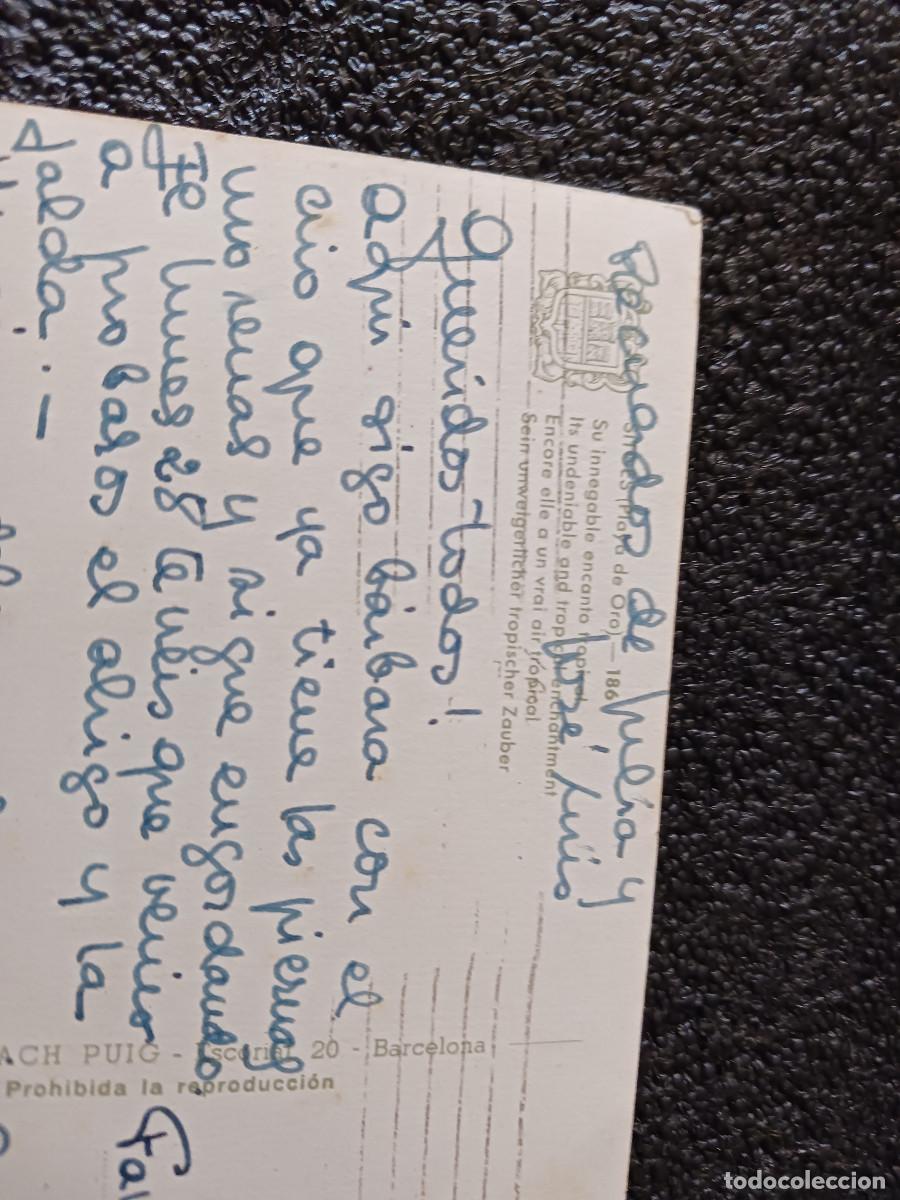 Recuerdos de Julia y
José Luis
Sitges (Playa de Oro) — 186
Su innegable encanto tropical
Its undeniable and tropical enchantment
Encore elle a un vrai air tropical.
Sein unweigerlicher tropischer Zauber
Queridos todos!
aqui sigo bárbara con el
que ya tiene las piernas
y sigue engordando
lunes 28 teneis que venir
a probaros el abrigo y la
falda. —
ACH PUIG - Escorial, 20 - Barcelona
Prohibida la reproducción
todocoleccion